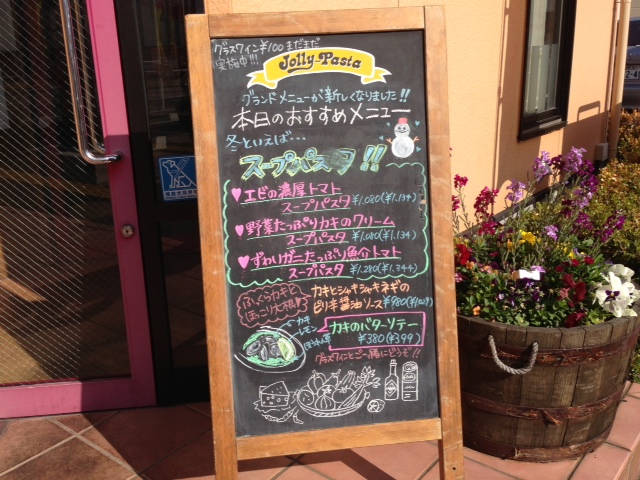 グラスワイン¥100 まだまだ
実施中!!!
Jolly-Pasta
グランドメニューが新しくなりました!!
本日のおすすめメニュー
冬といえば…
スープパスタ!!
♥エビの濃厚トマト
スープパスタ ¥1,080(¥1,134)
♥野菜たっぷりカキのクリーム
スープパスタ ¥1,080(¥1,134)
♥ずわいガニたっぷり魚介トマト
スープパスタ ¥1,280(¥1,344)
ふっくらカキと
ほっこり大根!!
カキとシャキシャキネギの
ピリ辛醤油ソース ¥980(¥1,029)
カキ
レモン
ほうれん草
カキのバターソテー
¥380(¥399)
グラスワインとご一緒にどうぞ!!